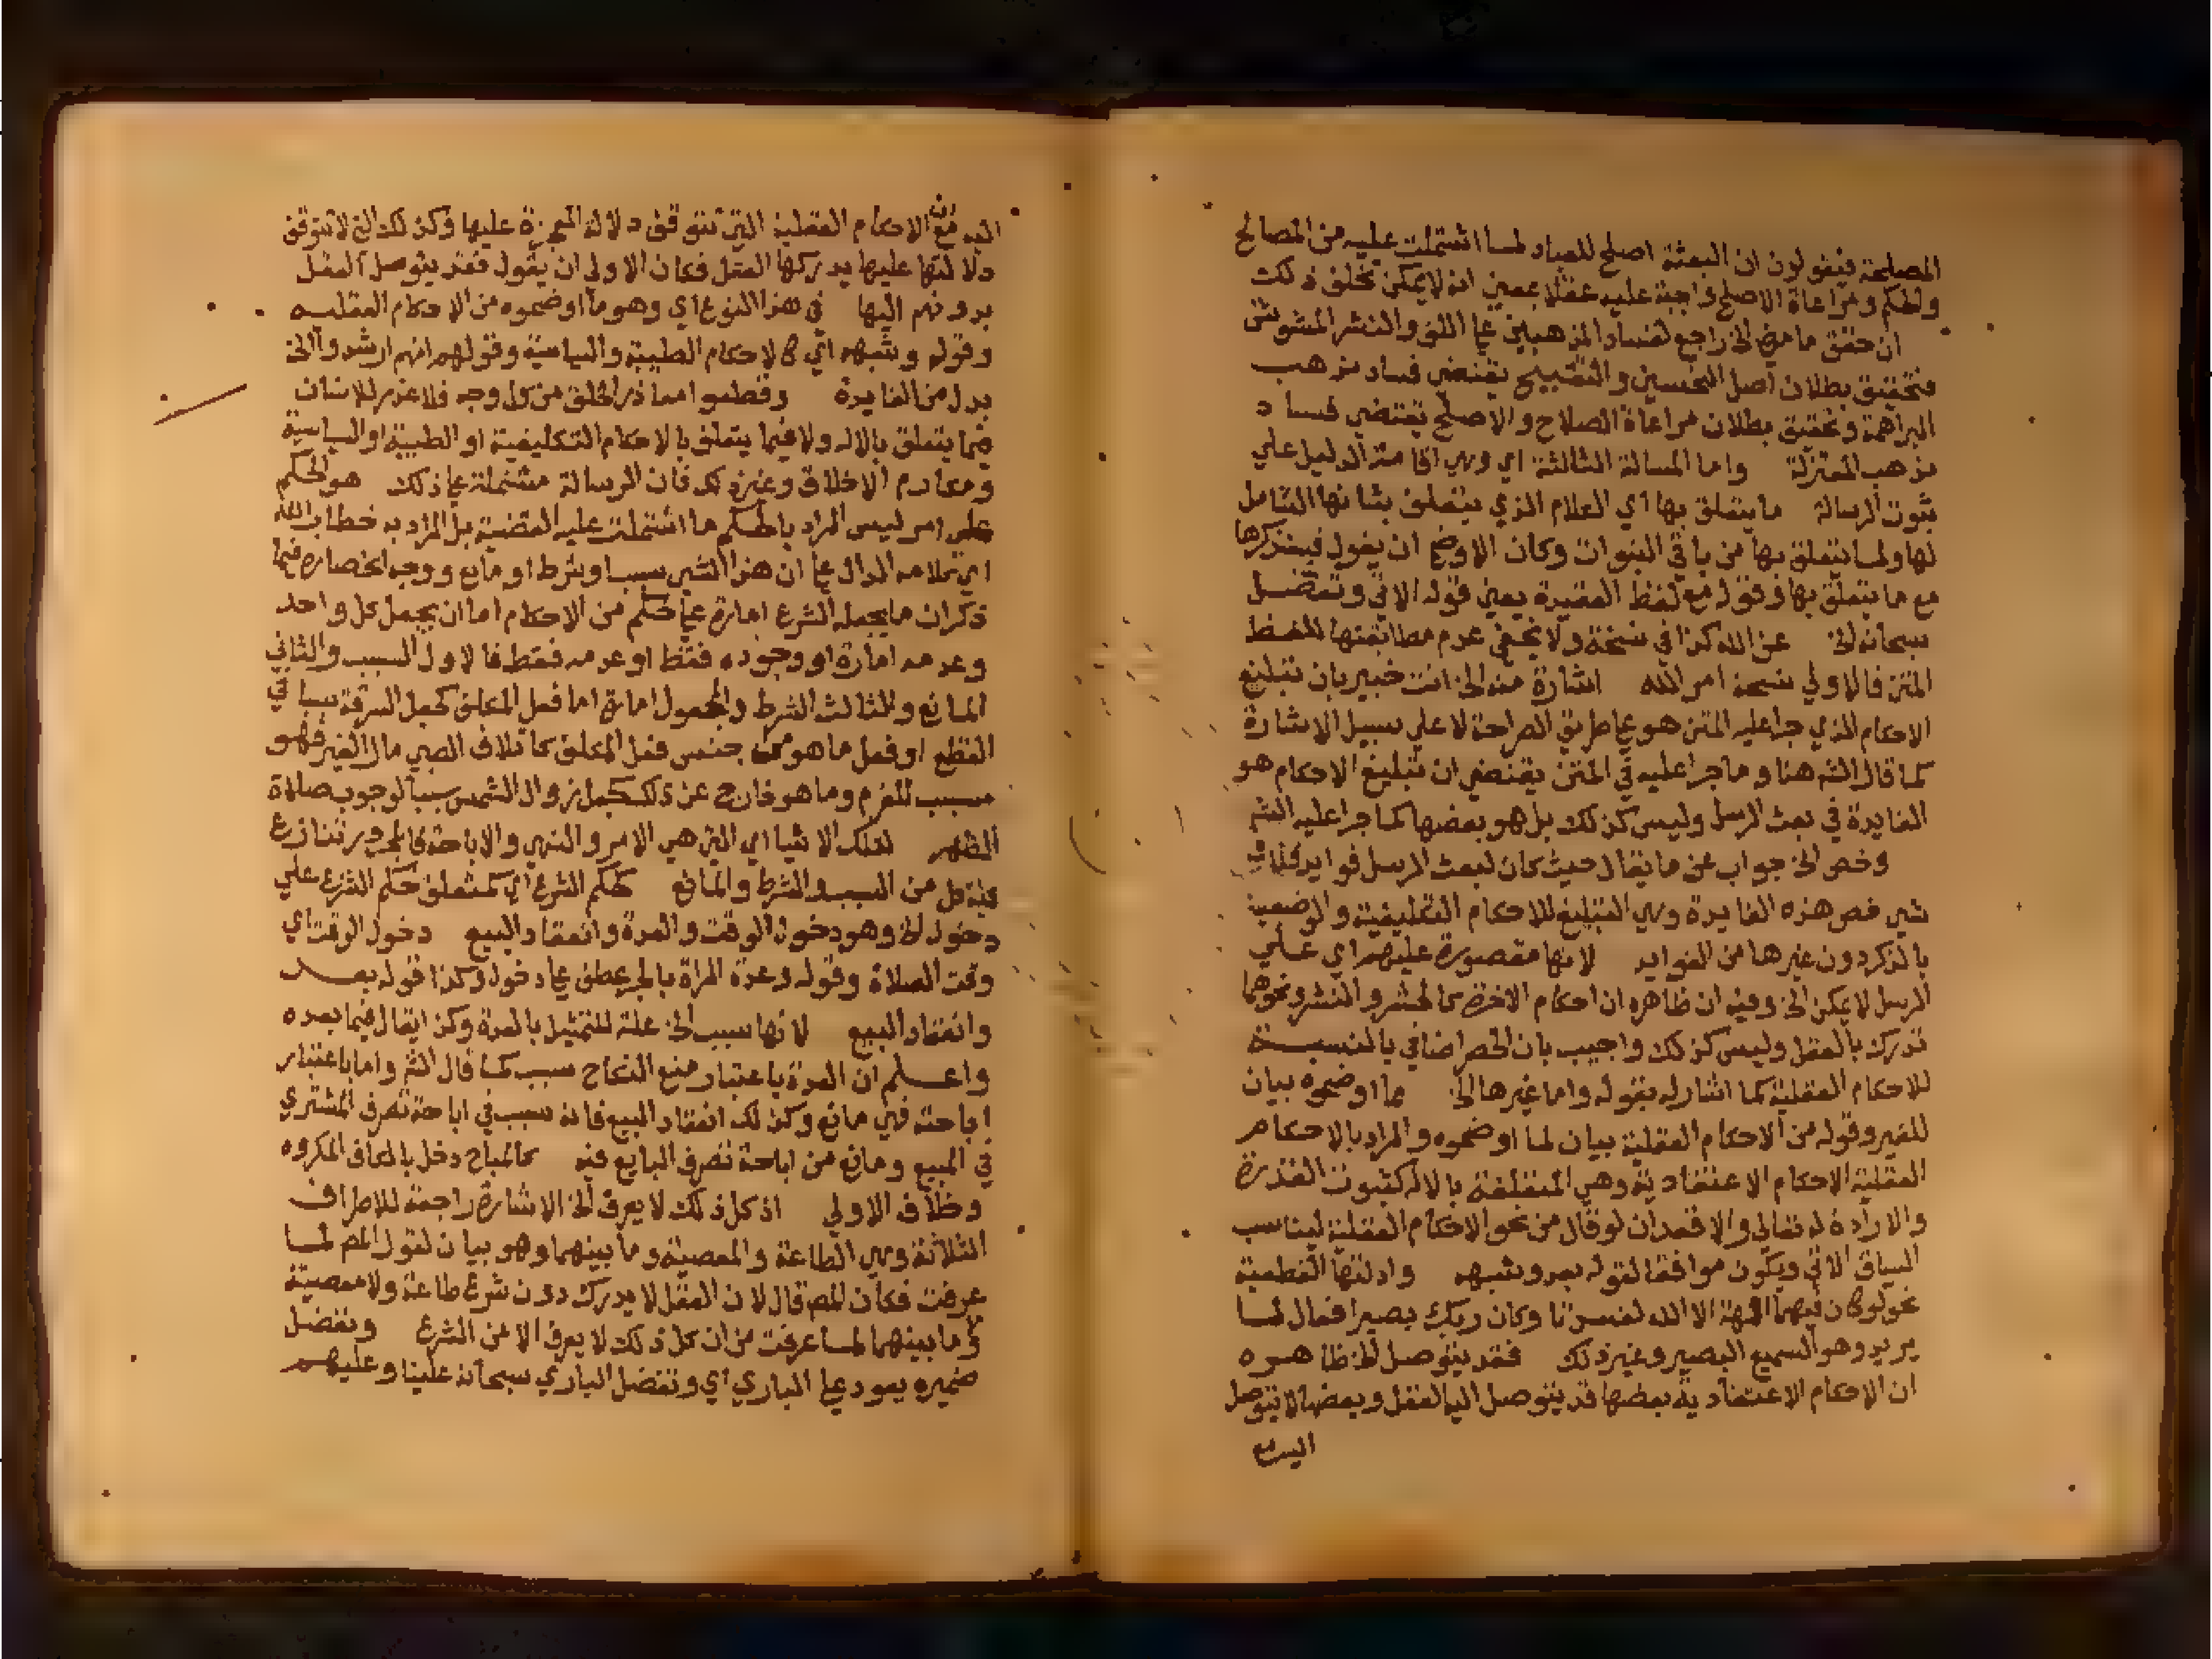 المصلحة فيقولون ان البعثة اصلح للعباد لما اشتملت عليه من المصالح
والحكم ومراعاة الاصلح واجبة عليه عقلا بمعني انه لا يمكن تخلف ذلك
ان حقق ما مر الخ راجع لفساد المذهبين علي اللف والنشر المشوش
فتحقيق بطلان اصل التحسين والتقبيح يقتضي فساد مذهب
البراهمة وتحقيق بطلان مراعاة الصلاح والاصلح يقتضي فساد
مذهب المعتزلة واما المسالة الثالثة اي وهي اقامة الدليل علي
ثبوت الرسالة ما يتعلق بها اي الكلام الذي يتعلق بشانها الشامل
لها ولما يتعلق بها من باقي النبوات وكان الاوضح ان يقول فيذكرها
مع ما يتعلق بها وقوله مع لفظ العقيدة يعني قوله الاتي وتفضل
سبحانه الخ عن الله كذا في نسخة ولا يخفي عدم مطابقتها للفظ
المتن فالاولي نسخة امر الله اشارة منه الخ انت خبير بان تبليغ
الاحكام الذي جرا عليه المتن هو علي طريق الصراحة لا علي سبيل الاشارة
كما قال الشه هنا وما جرا عليه في المتن يقتضي ان تبليغ الاحكام هو
الفايدة في بعث الرسل وليس كذلك بل هو بعضها كما جرا عليه الشه
وخص الخ جواب عن ما يقال حيث كان لبعث الرسل فوايد فلاي
شي خص هذه الفايدة وهي التبليغ للاحكام التكليفية والوضعية
بالذكر دون غيرها من الفوايد لانها مقصورة عليهم اي علي
الرسل لا يمكن الخ وفيه ان ظاهره ان احكام الاخرة كالحشر والنشر ونحوهما
تدرك بالعقل وليس كذلك واجيب بان الحصر اضافي بالنسبة
للاحكام العقلية كما اشار له بقوله واما غيرها الخ ما اوضحوه بيان
للغير وقوله من الاحكام العقلية بيان لما اوضحوه والمراد بالاحكام
العقلية الاحكام الاعتقادية وهي المتعلقة بالاله كثبوت القدرة
والارادة له تعالي والاقعد ان لو قال من نحو الاحكام العقلية ليناسب
السياق الاتي ويكون موافقا لقوله بعد وشبهه وادلتها القطعية
نحو لو كان فيهما الهة الا الله لفسدتا وكان ربك بصيرا فعال لما
يريد وهو السميع البصير وغير ذلك فقد يتوصل الخ ظاهره
ان الاحكام الاعتقادية بعضها قد يتوصل اليه العقل وبعضها لا يتوصل
اليه مع
اليه مع ان الاحكام العقلية التي تتوقف دلالة المعجزة عليها وكذلك التي لا تتوقف
دلالتها عليها يدركها العقل فكان الاولي ان يقول فقد يتوصل العقل
بدونهم اليها في هذا النوع اي وهو ما اوضحوه من الاحكام العقليه
وقوله وشبهه اي كالاحكام الطبية والسياسية وقولهم انهم ارشدوا الخ
بدل من الفايدة وقطعوا معاذر الخلق من كل وجه فلا عذر للانسان
فيما يتعلق بالاله ولا فيما يتعلق بالاحكام التكليفية او الطبية او السياسية
ومكارم الاخلاق وغير ذلك فان الرسالة مشتملة علي ذلك هو الحكم
علي امر ليس المراد بالحكم ما اشتملت عليه القضية بل المراد به خطاب الله
اي كلامه الدال علي ان هذا الشي سببا وشرط او مانع ووجه انحصاره فيما
ذكر ان ما يجعله الشرع امارة علي حكم من الاحكام اما ان يجعل كل واحد
وعدمه امارة او وجوده فقط او عدمه فقط فالاول السبب والثاني
المانع والثالث الشرط والمجعول امارة اما فعل المكلف كجعل السرقة سببا في
القطع او فعل ما هو من جنس فعل المكلف كاتلاف الصبي مال الغير فهو
سبب للغرم وما هو خارج عن ذلك كجعل زوال الشمس سببا لوجوب صلاة
الظهر لتلك الاشيا اي التي هي الامر والنهي والاباحة فالمجرور تنازع
فيه كل من السبب والشرط والمانع كحكم الشرع اي كمتعلق حكم الشرع علي
دخول الخ وهو دخول الوقت والعدة وانعقاد البيع دخول الوقت اي
وقت الصلاة وقوله وعدة المراة بالجر عطف علي دخول وكذا قوله بعد
وانعقاد البيع لانها سبب الخ علة للتمثيل بالعدة وكذا يقال فيما بعده
واعلم ان العدة باعتبار منع النكاح سبب كما قال الشه واما باعتبار
اباحته فهي مانع وكذلك انعقاد البيع فانه سبب في اباحة تصرف المشتري
في المبيع ومانع من اباحة تصرف البايع فيه كالمباح دخل بالكاف المكروه
وخلاف الاولي اذ كل ذلك لا يعرف الخ الاشارة راجعة للاطراف
الثلاثة وهي الطاعة والمعصية وما بينهما وهو بيان لقول المص لما
عرفت فكان المص قال لان العقل لا يدرك دون شرع طاعة ولا معصية
ولا ما بينهما لما عرفت من ان كل ذلك لا يعرف الا من الشرع وتفضل
ضميره يعود علي الباري اي وتفضل الباري سبحانه علينا وعليهم